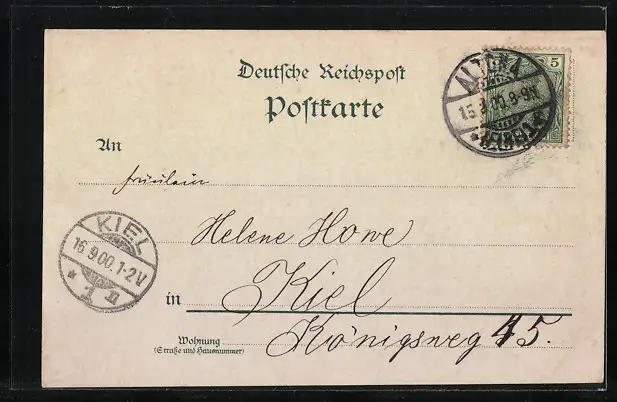 Deutsche Reichspost
Postkarte
ALTONA
15.9.00.8-9N.
5
An
Fräulein
Helene Howe
KIEL
16.9.00.1-2V
* 1 n
in Kiel
Wohnung
(Straße und Hausnummer)
Königsweg 45.